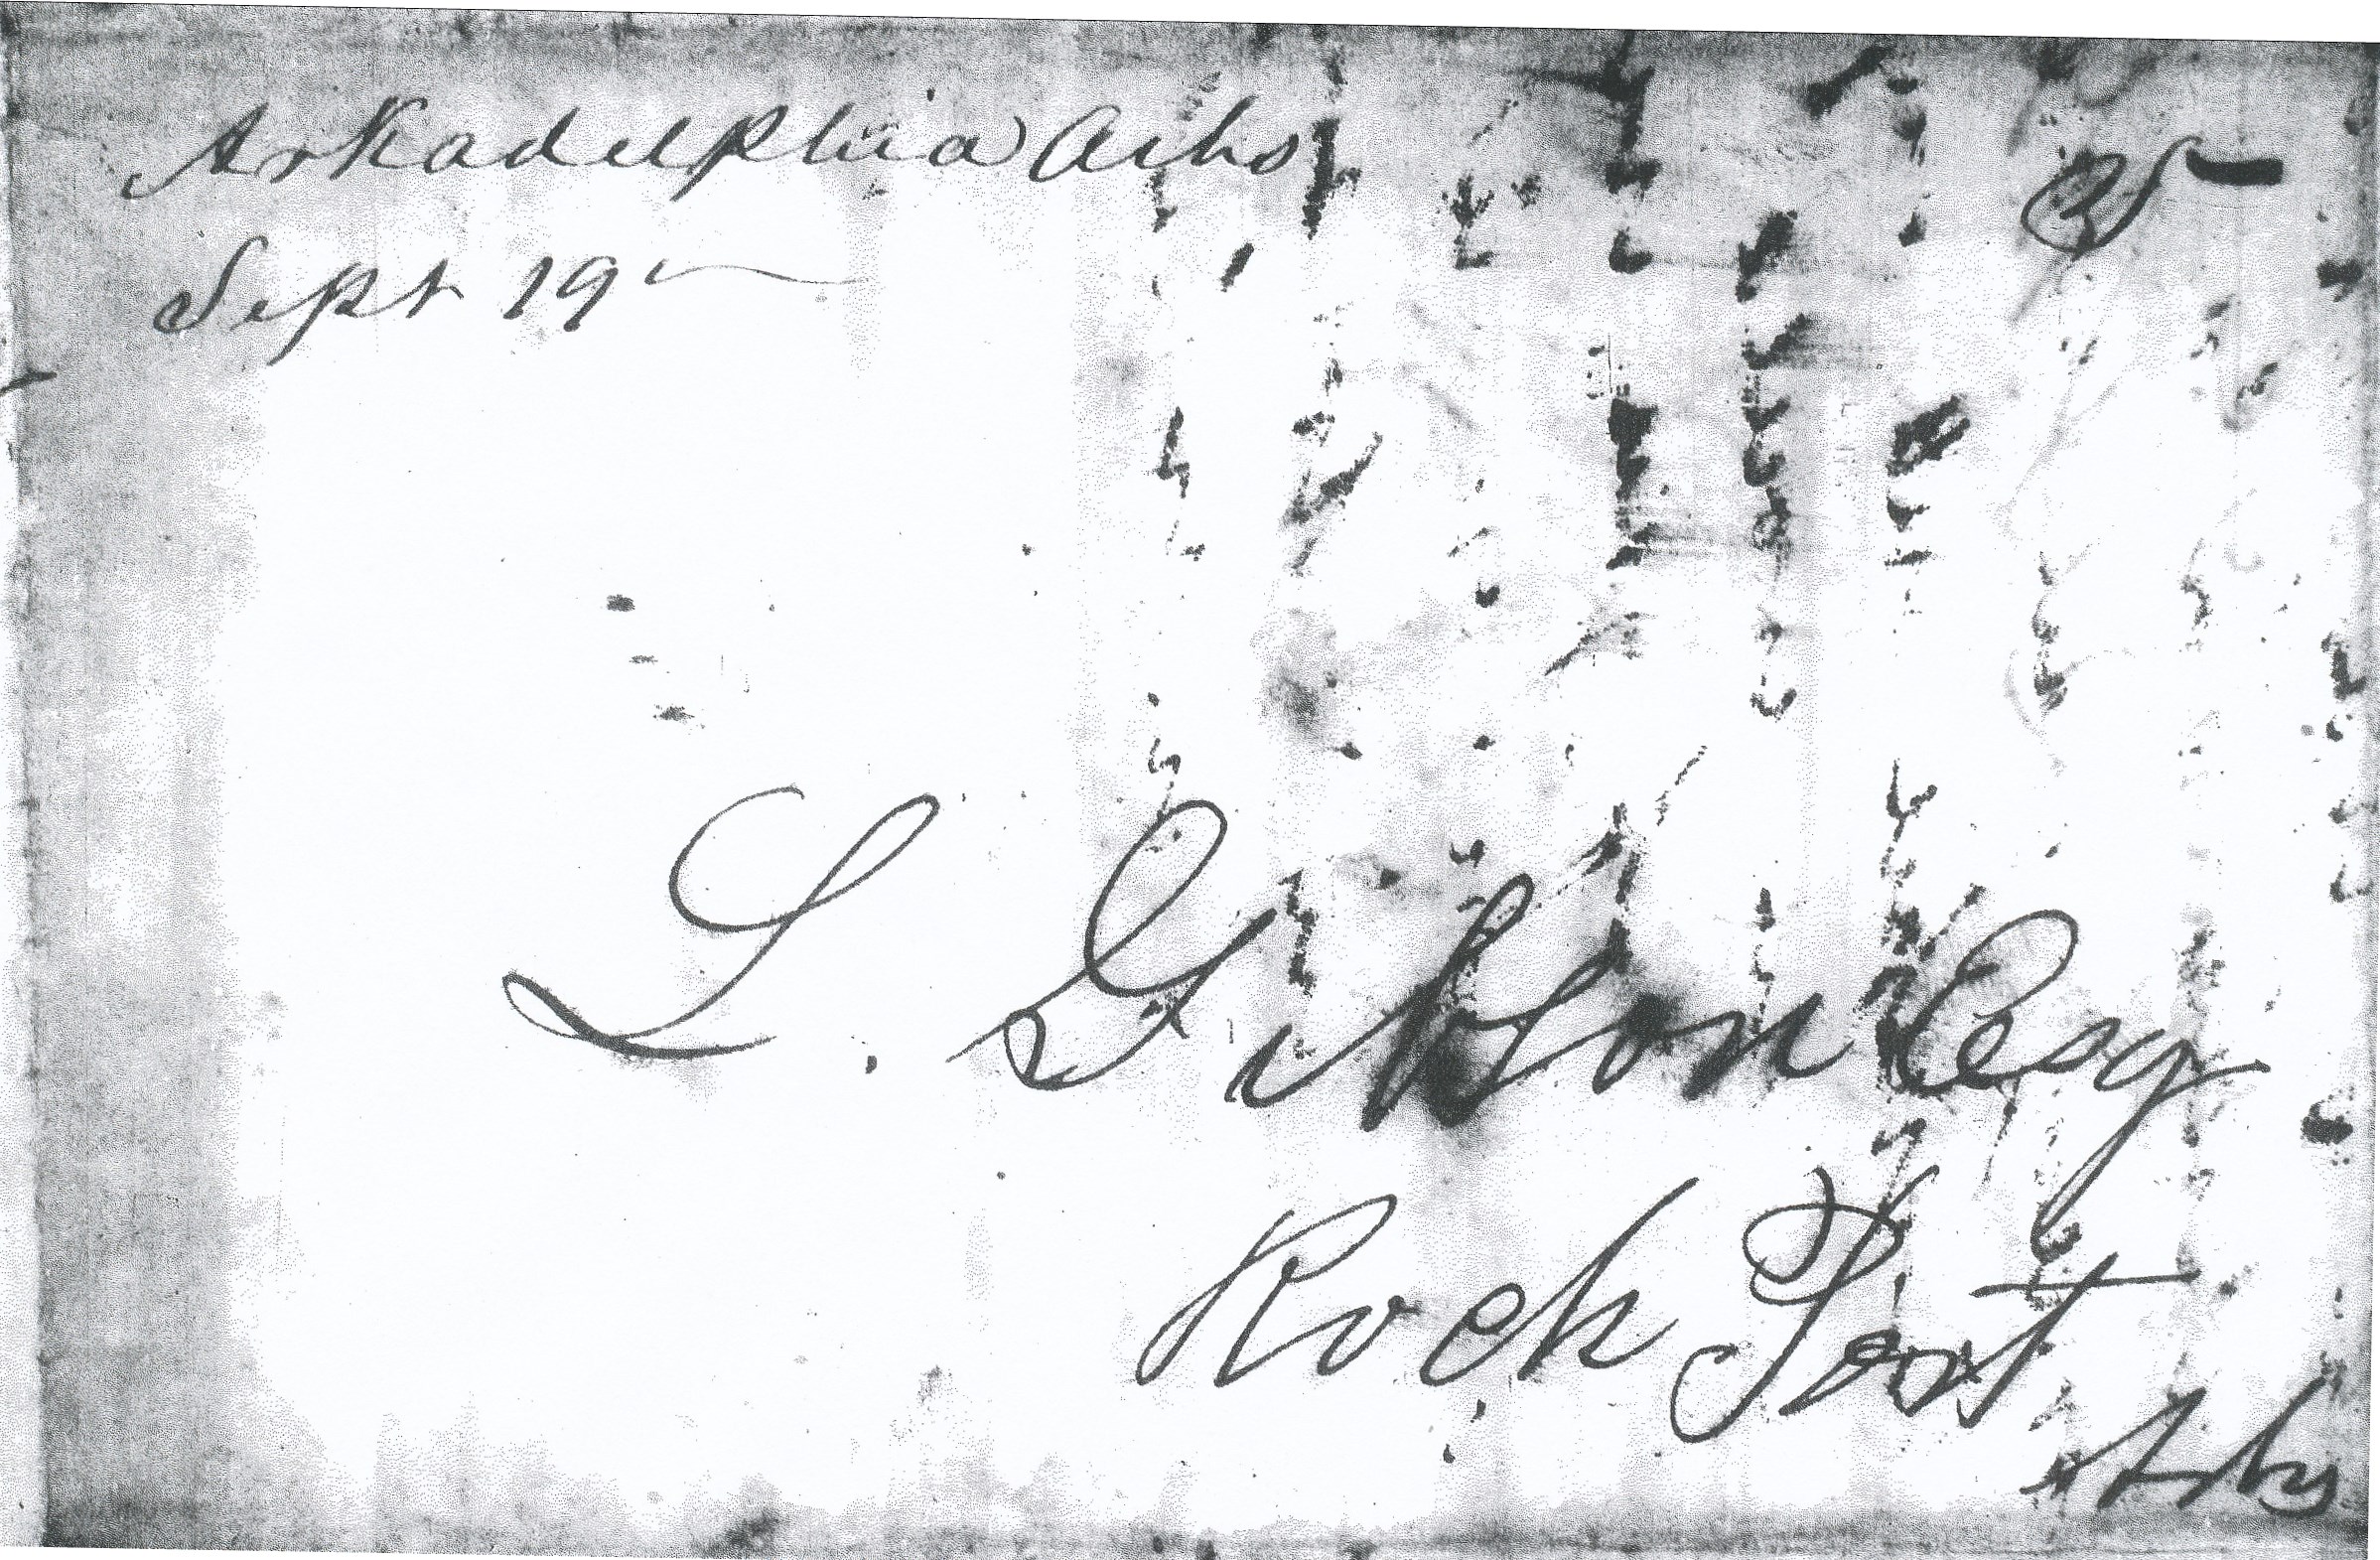 Arkadelphia Arks
Sept 19
25
L. Gibson Esq
Rock Port
Arks